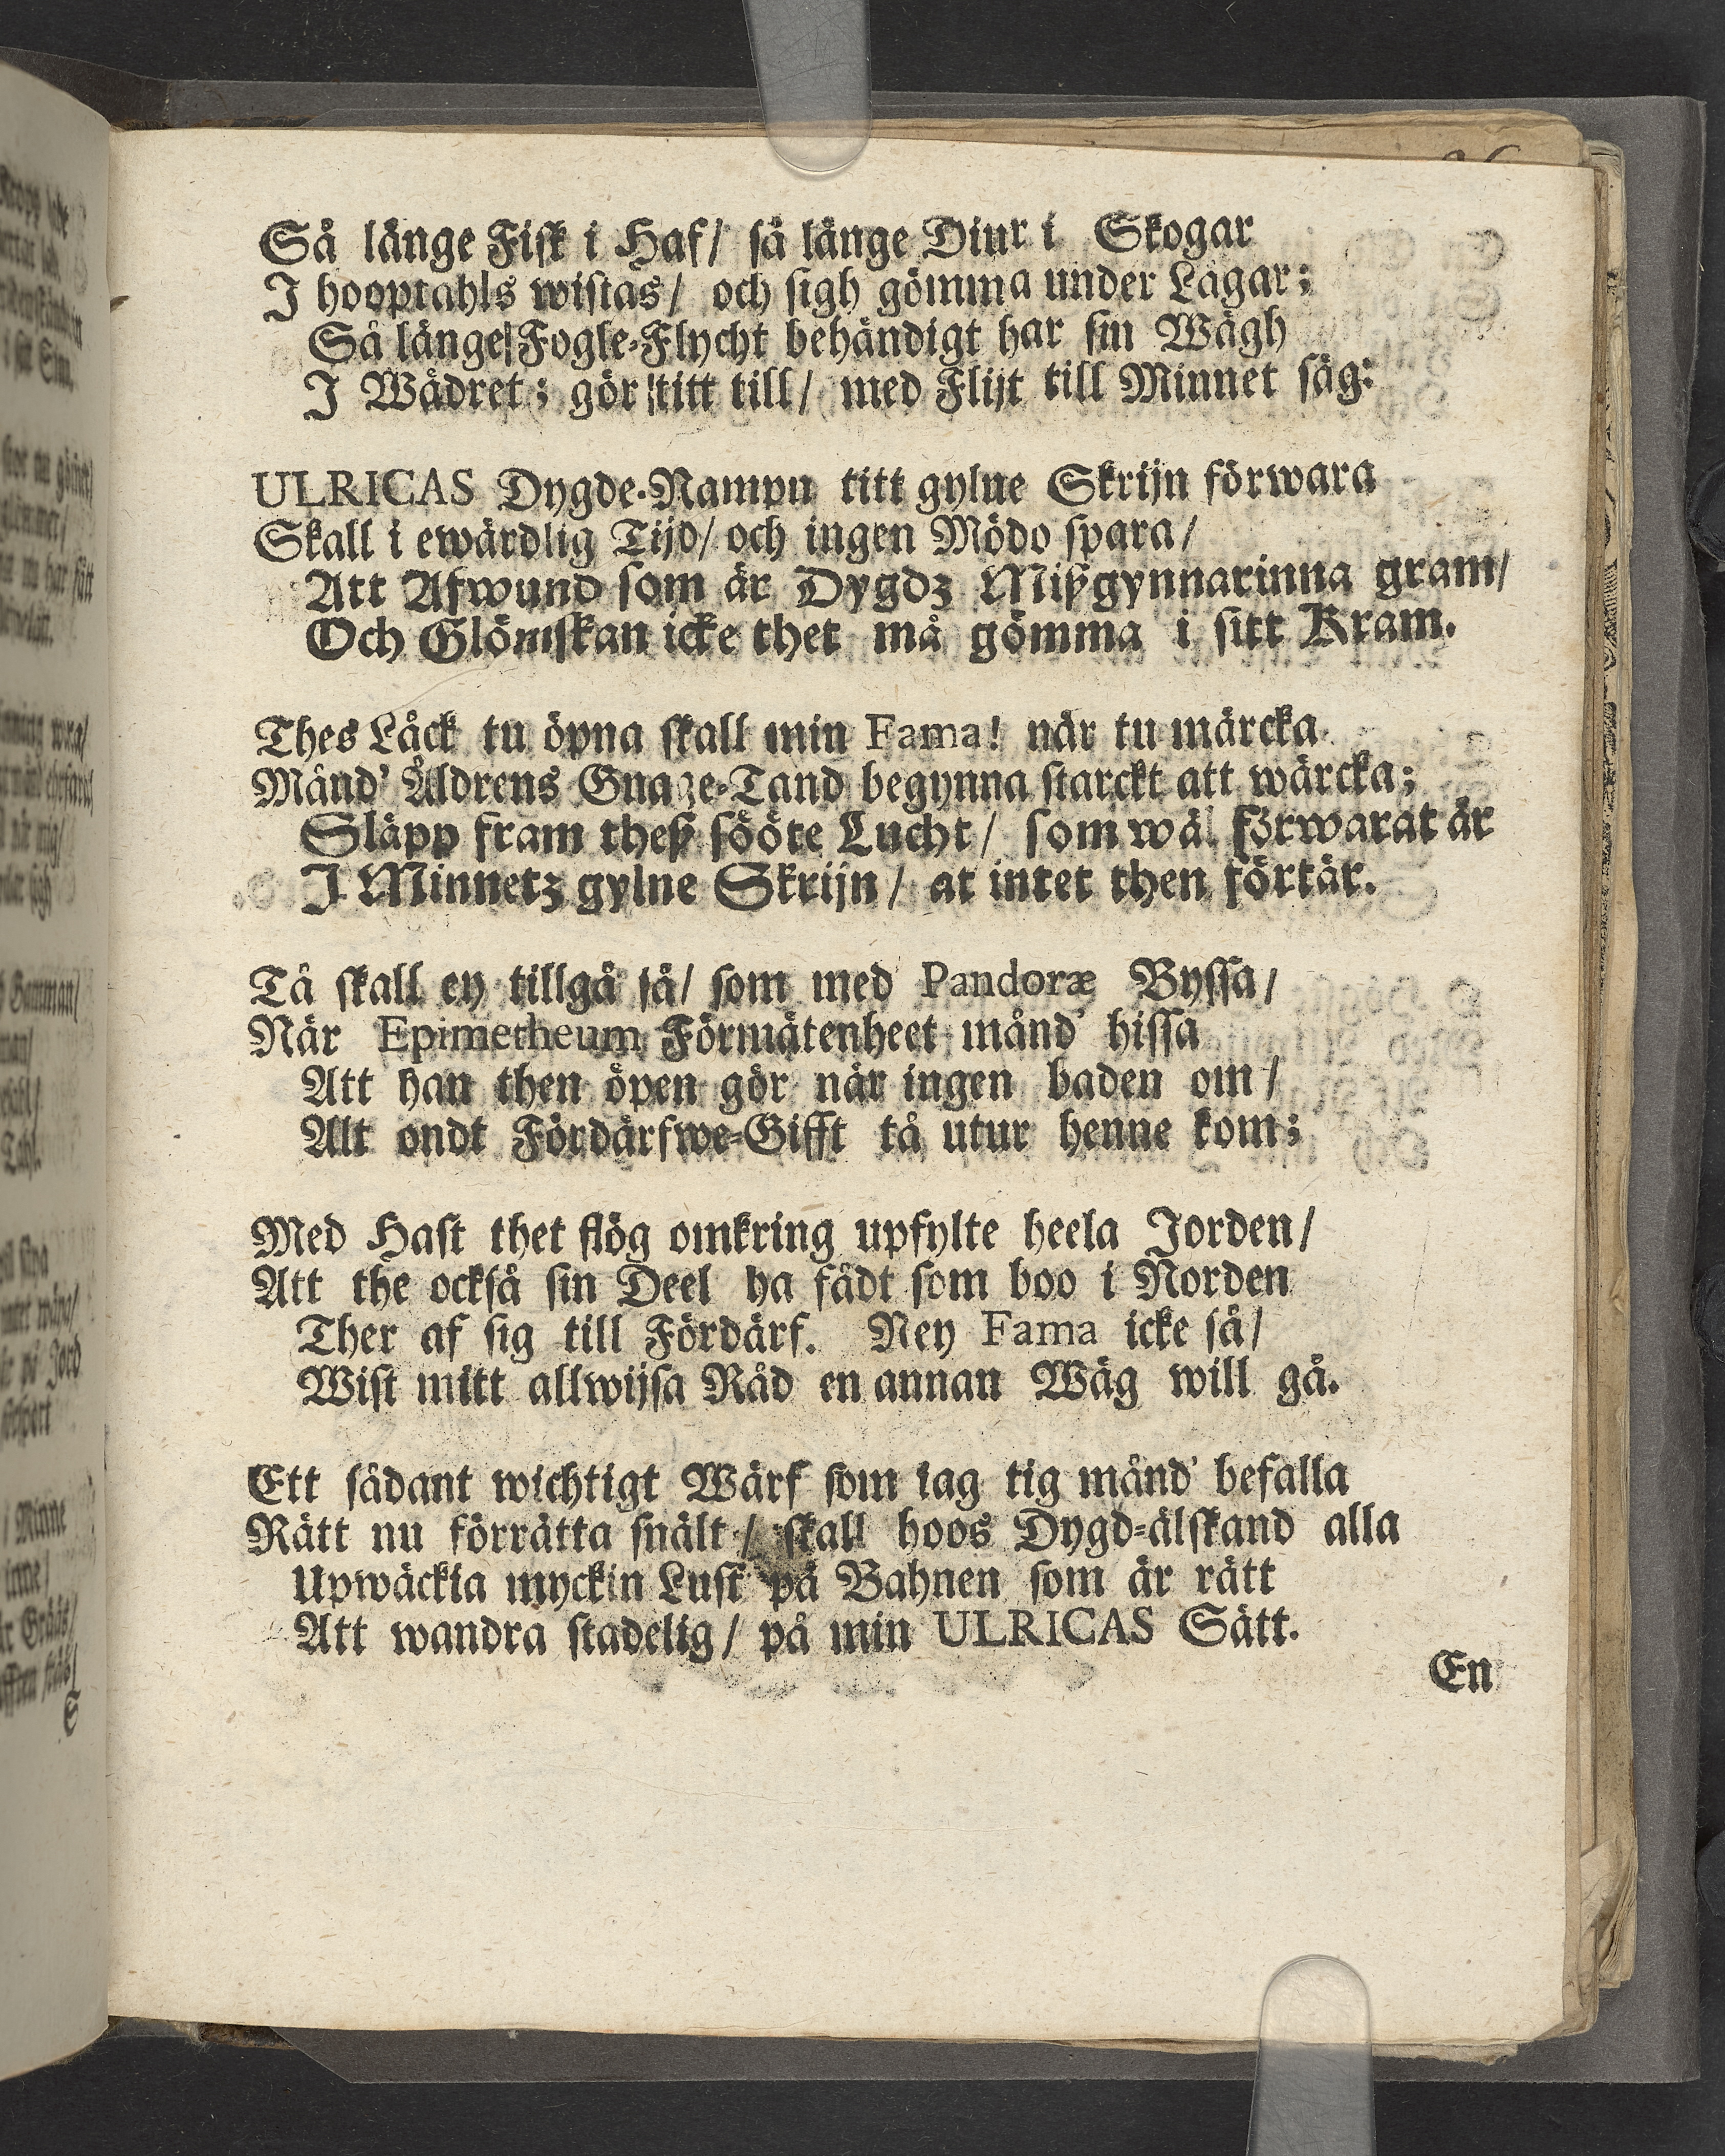 Så länge Fisk i Haf/ så länge Diur i Skogar
I hooptahls wistas/ och sigh gömma under Lågar;
Så länge Fogle-Flycht behändigt har sin Wägh
I Wädret; gör titt till/ med Flijt till Minnet säg:
ULRICAS Dygde-Nampn titt gylne Skrijn förwara
Skall i ewärdlig Tijd/ och ingen Mödo spara/
Att Afwund som är Dygdz Mißgynnarinna gram/
Och Glömskan icke thet må gömma i sitt Kram.
Thes Låck tu öpna skall min Fama! när tu märcka
Månd' Åldrens Gnage-Tand begynna starckt att wärcka;
Släpp fram theß sööte Lucht/ som wäl förwarat är
I Minnetz gylne Skrijn/ at intet then förtär.
Tå skall ey tillgå så/ som med Pandoræ Byssa/
När Epimetheum Förmätenheet månd' hissa
Att han then öpen gör när ingen baden om/
Alt ondt Fördärfwe-Gifft tå utur henne kom;
Med Hast thet flög omkring upfylte heela Jorden/
Att the också sin Deel ha fådt som boo i Norden
Ther af sig till Fördärf. Ney Fama icke så/
Wist mitt allwijsa Råd en annan Wäg will gå.
Ett sådant wichtigt Wärf som iag tig månd' befalla
Rätt nu förrätta snält/ skall hoos Dygd-älskand alla
Upwäckia myckin Lust på Bahnen som är rätt
Att wandra stadelig/ på min ULRICAS Sätt.
En